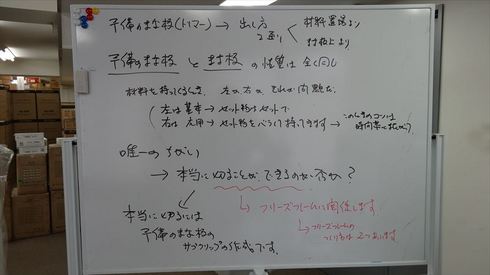 予備のまな板(トリマー) → 出し方 2通り
材料置場より
まな板上より
予備のまな板 と まな板 の性質は全く同じ
材料を持ってくるんで、左か、右か、それが問題だ。
左は基本 → セット物はセットで
右は応用 → セット物をバラして持ってきます →
唯一のちがい
→ 本当に切ることが、できるのか否か?
↳ フリーズフレームに関係します。
↳ フリーズフレームの
つくり方は2つあります
本当に切るには
予備のまな板の
サブクリップの作成です。